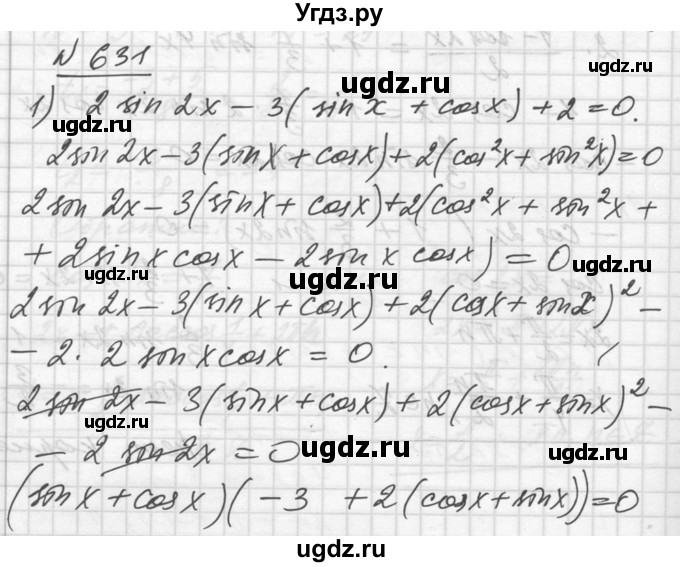 Угдз.ру
N 631
1) 2 sin 2x − 3(sin x + cos x) + 2 = 0.
2 sin 2x − 3(sin x + cos x) + 2(cos²x + sin²x) = 0
2 sin 2x − 3(sin x + cos x) + 2(cos²x + sin²x +
+ 2 sin x cos x − 2 sin x cos x) = 0
2 sin 2x − 3(sin x + cos x) + 2(cos x + sin x)² −
− 2 · 2 sin x cos x = 0.
2 sin 2x − 3(sin x + cos x) + 2(cos x + sin x)² −
− 2 sin 2x = 0
(sin x + cos x)(−3 + 2(cos x + sin x)) = 0
ugdz.ru
ugdz.ru
ugdz.ru
ugdz.ru
ugdz.ru
ugdz.ru
ugdz.ru
ugdz.ru
ugdz.ru
ugdz.ru
ugdz.ru
ugdz.ru
ugdz.ru